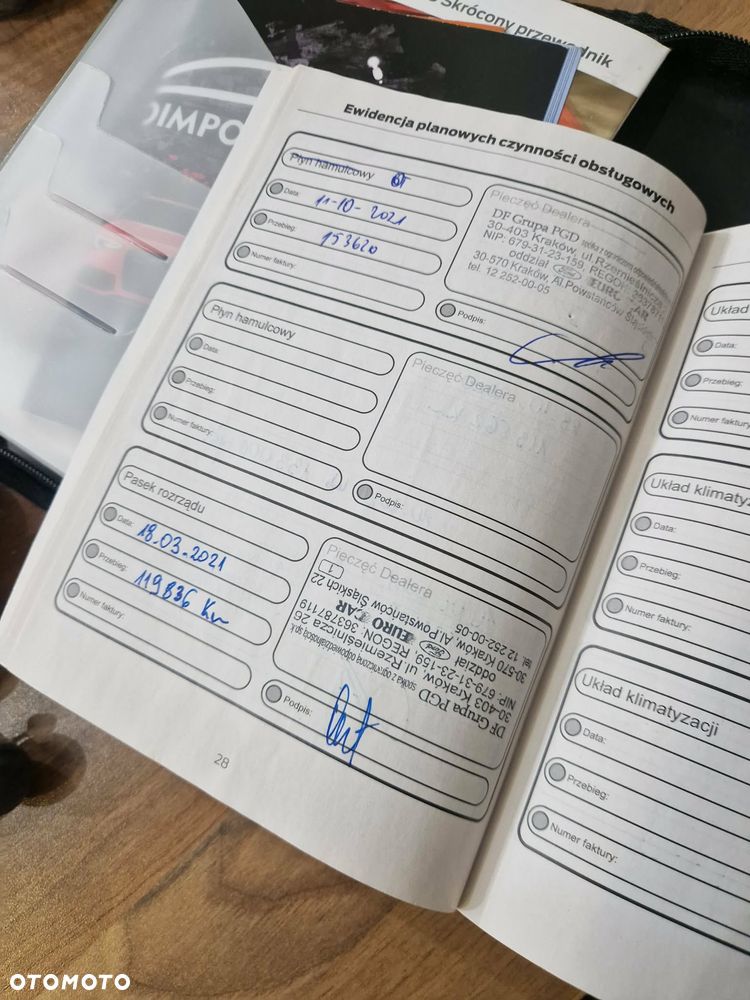 Skrócony przewodnik
DIMPO
Ewidencja planowych czynności obsługowych
Płyn hamulcowy
Data: 11-10-2021
Przebieg: 153620
Numer faktury:
Pieczęć Dealera
DF Grupa PGD
30-403 Kraków, ul. Rzemieślnicza
NIP: 679-31-23-159, REGON:
oddział Ford EURO CAR
30-570 Kraków, Al. Powstańców
tel. 12 252-00-05
Podpis:
Płyn hamulcowy
Data:
Przebieg:
Numer faktury:
Pieczęć Dealera
Podpis:
Pasek rozrządu
Data: 18.03.2021
Przebieg: 119836 Km
Numer faktury:
Pieczęć Dealera
1
DF Grupa PGD
spółka z ograniczoną odpowiedzialnością sp.k.
30-403 Kraków, ul. Rzemieślnicza 26
NIP: 679-31-23-159, REGON: 363787119
oddział Ford EURO CAR
30-570 Kraków, Al. Powstańców Śląskich 22
tel. 12 252-00-05
Podpis:
28
Układ
Data:
Przebieg:
Numer faktury
Układ klimatyza
Data:
Przebieg:
Numer faktury:
Układ klimatyzacji
Data:
Przebieg:
Numer faktury:
OTOMOTO